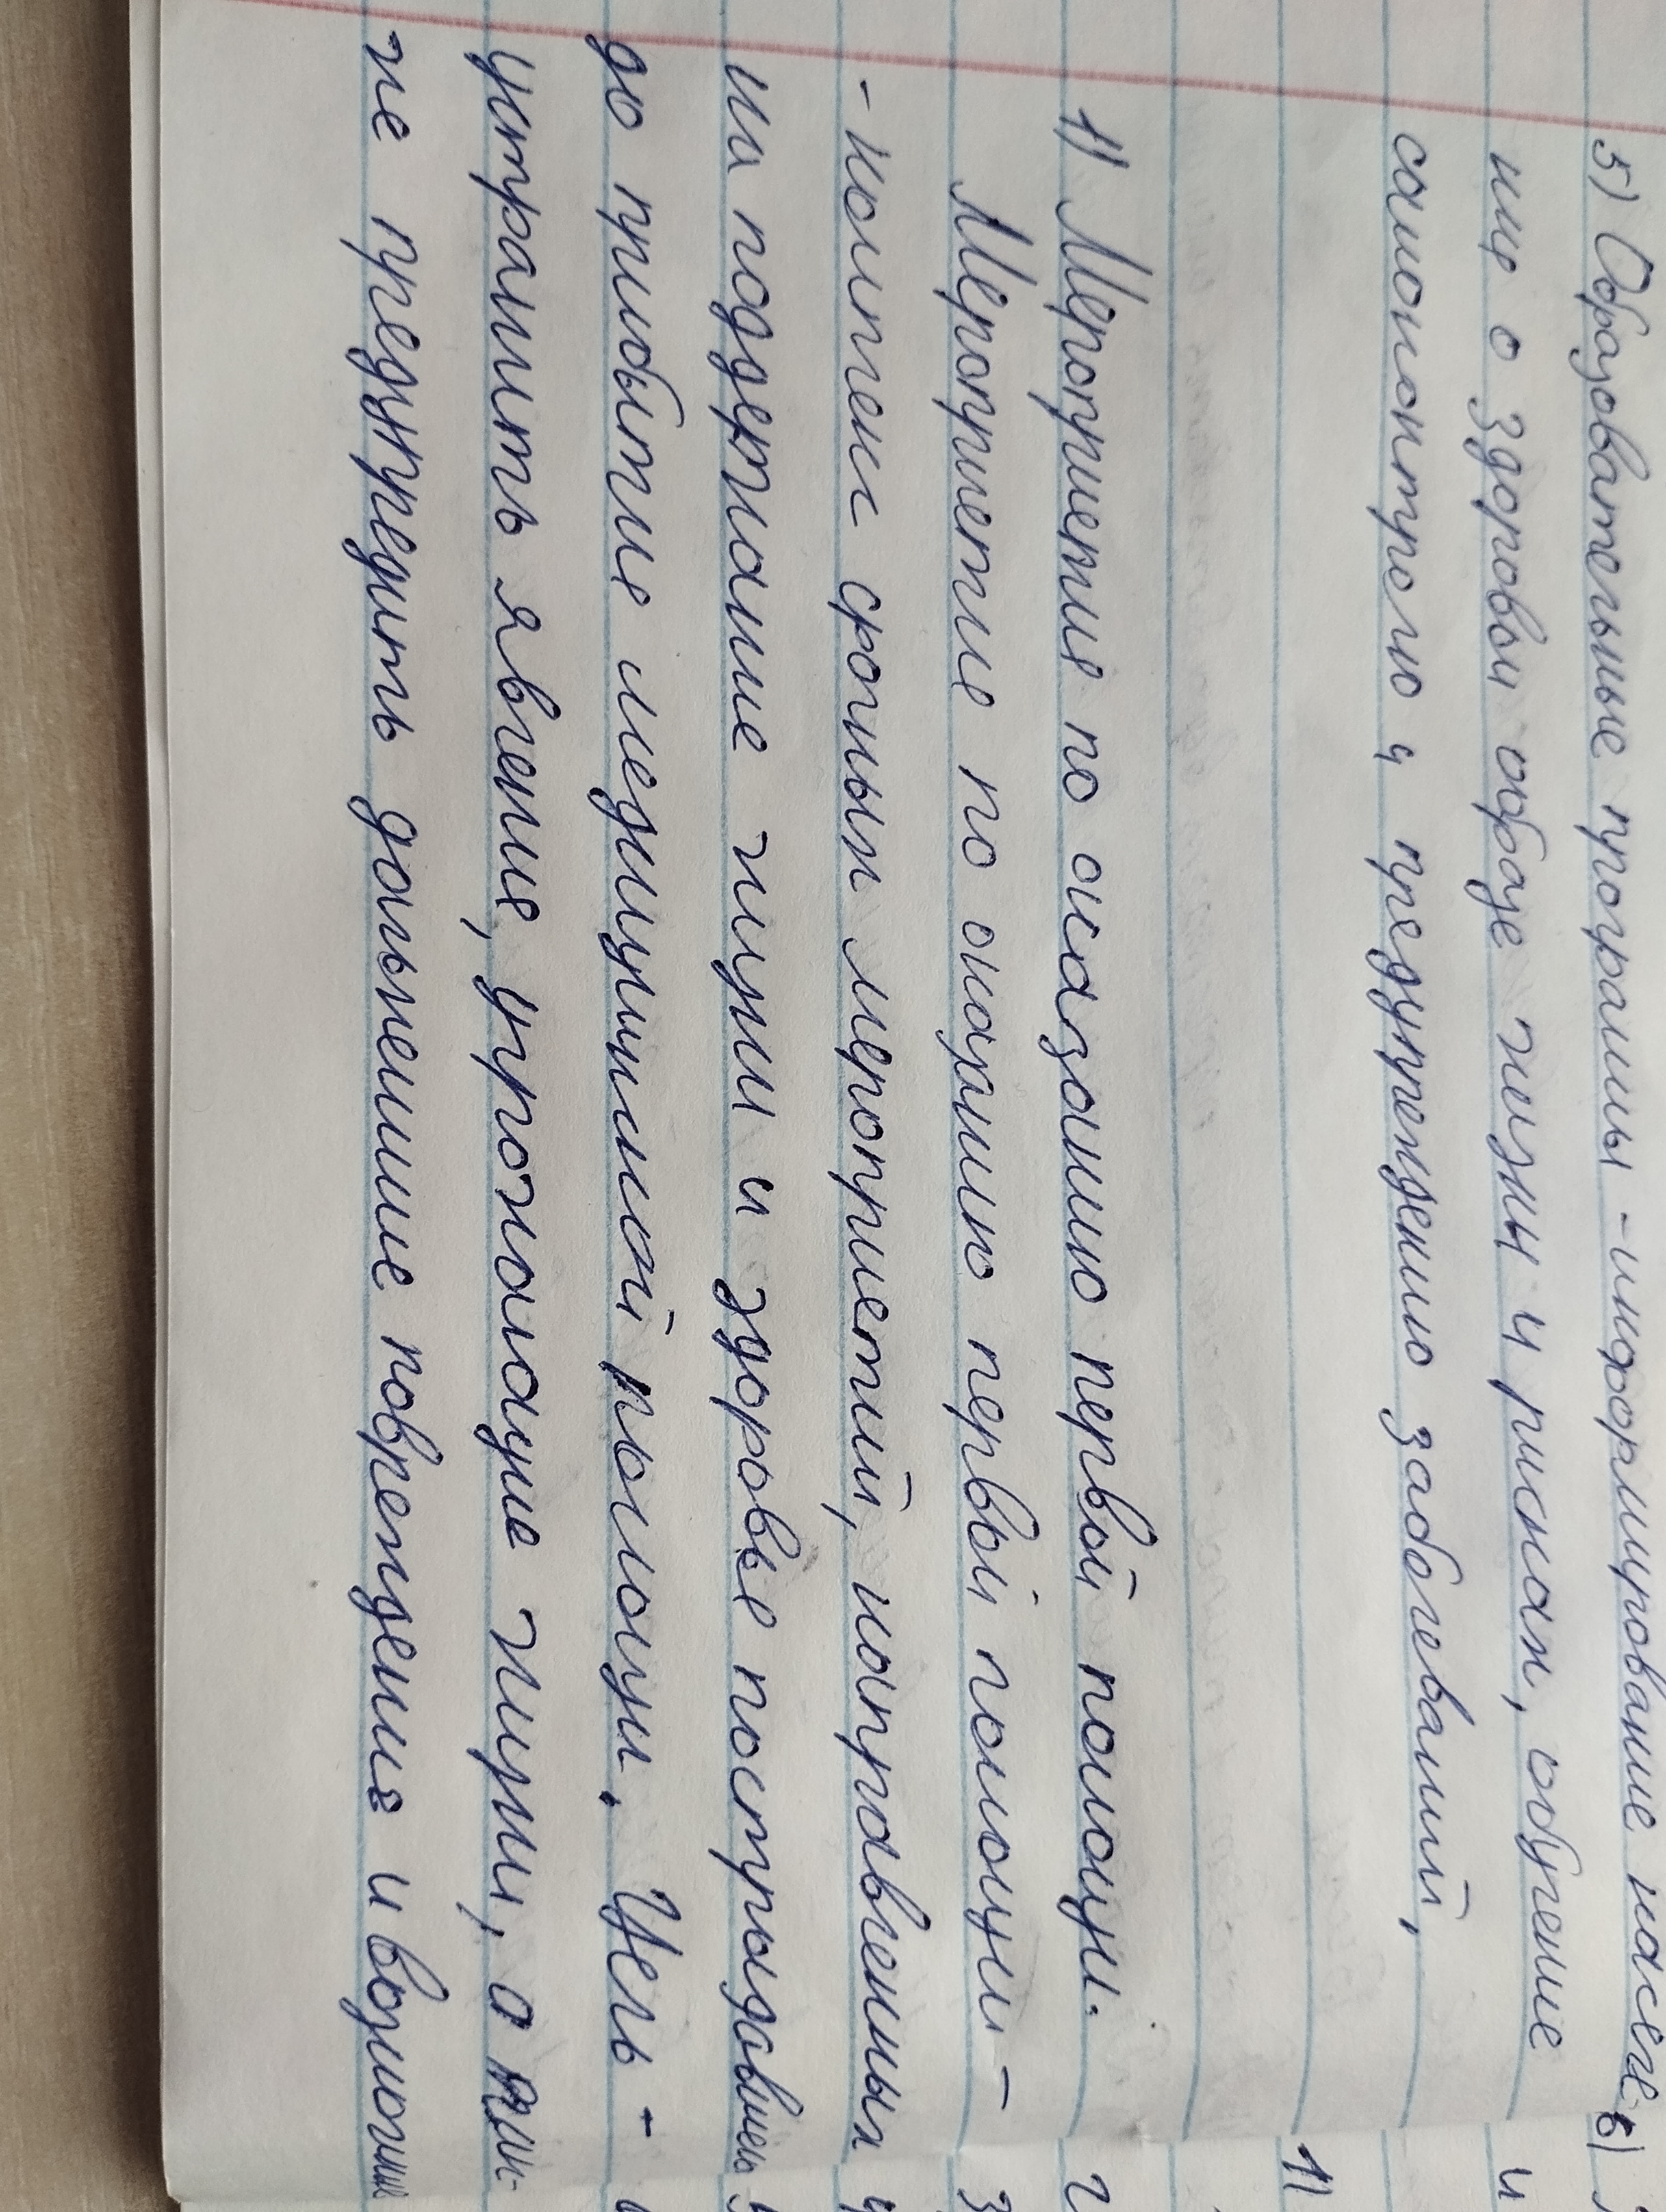 5) Образовательные программы - информирование населе-
ние о здоровом образе жизни и рисках, обучение
самоконтролю и предупреждению заболеваний,
1) Мероприятие по оказанию первой помощи.
Мероприятие по оказанию первой помощи -
- комплекс срочных мероприятий, направленных
на поддержание жизни и здоровье пострадавшего
до прибытие медицинской помощи. Цель -
устранить явления, угрожающие жизни, а так-
же предупредить дальнейшие повреждения и возможные
6)
и
1)